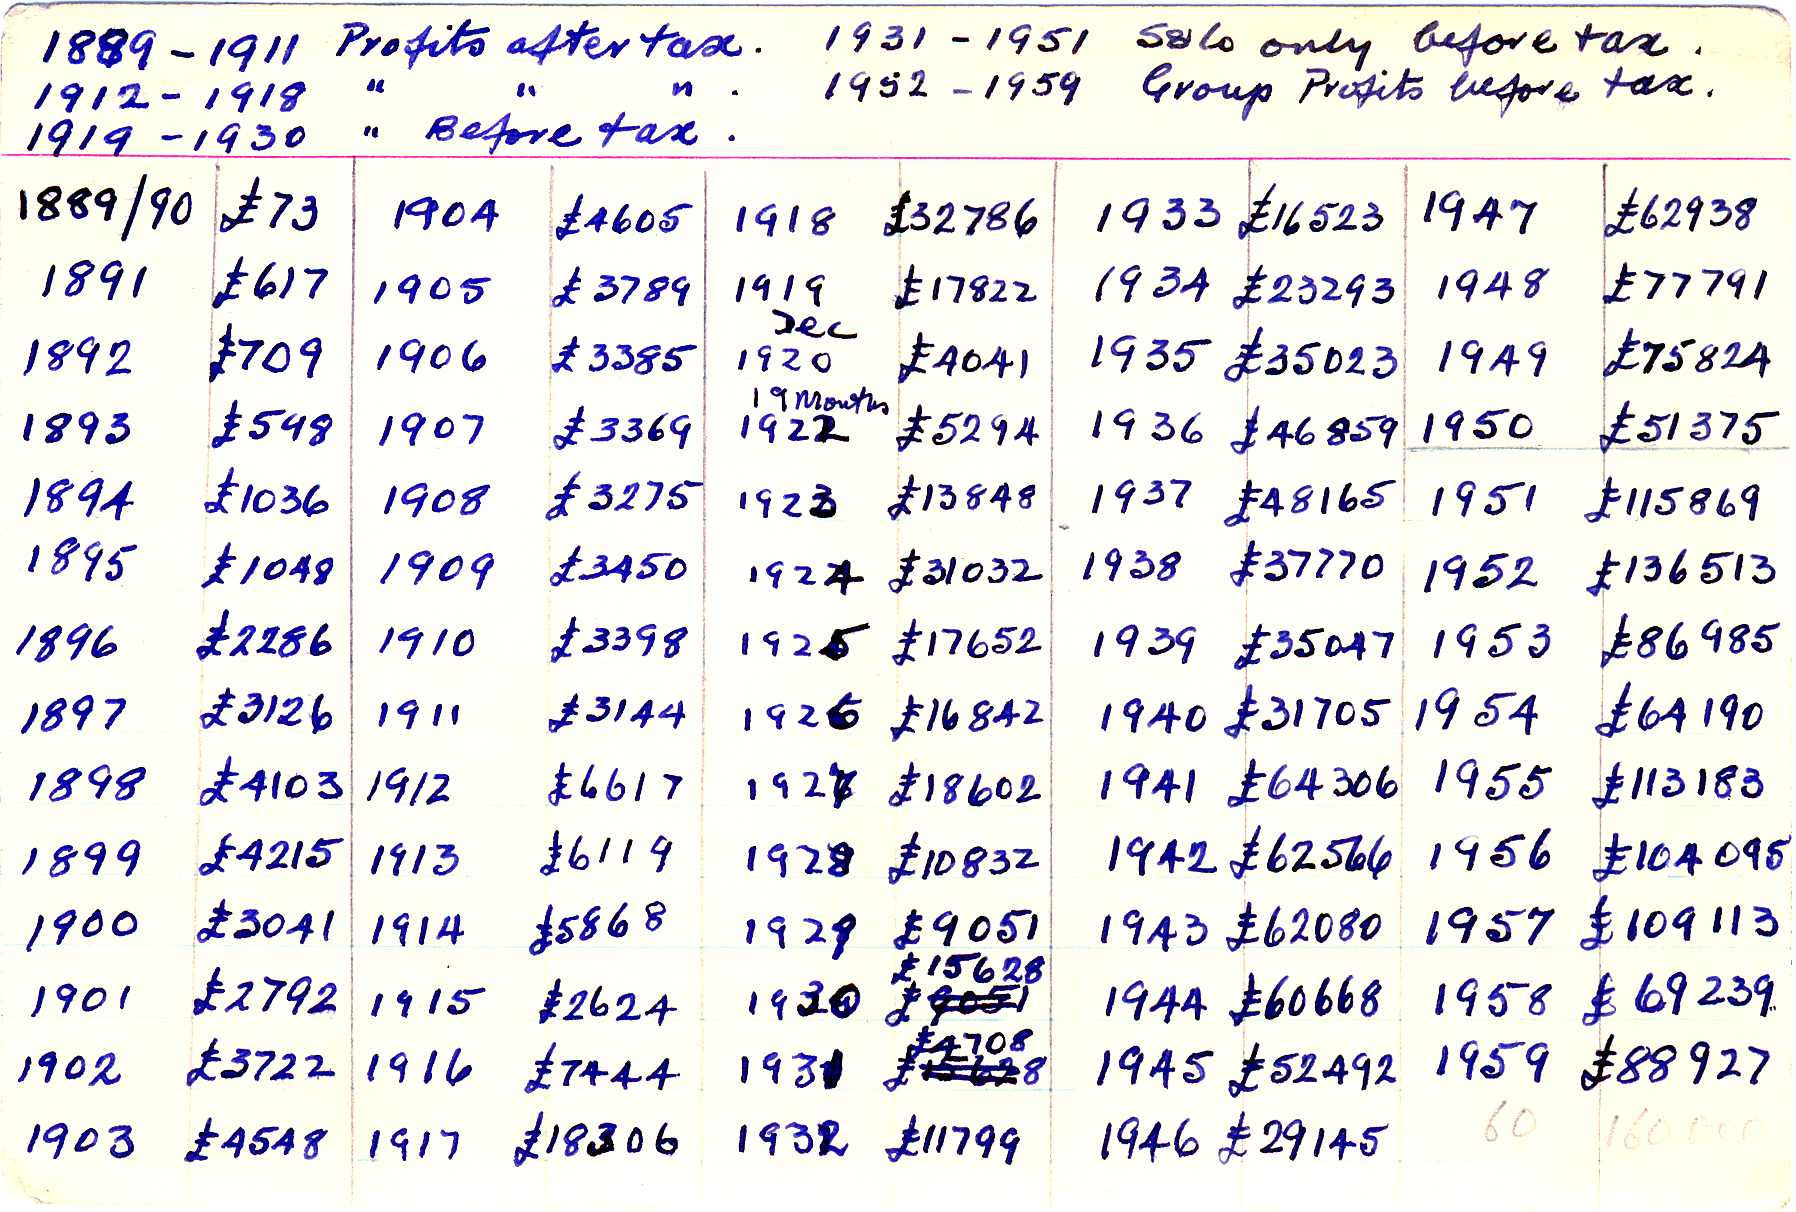 1889 - 1911 Profits after tax. 1931 - 1951 Solo only before tax.
1912 - 1918 " " " . 1952 - 1959 Group Profits before tax.
1919 - 1930 " Before tax.
1889/90 £73 1904 £4605 1918 £32786 1933 £16523 1947 £62938
1891 £617 1905 £3789 1919 £17822 1934 £23293 1948 £77791
Dec
1892 £709 1906 £3385 1920 £4041 1935 £35023 1949 £75824
19 months
1893 £598 1907 £3369 1922 £5294 1936 £46859 1950 £51375
1894 £1036 1908 £3275 1923 £13848 1937 £48165 1951 £115869
1895 £1048 1909 £3450 1924 £31032 1938 £37770 1952 £136513
1896 £2286 1910 £3398 1925 £17652 1939 £35047 1953 £86985
1897 £3126 1911 £3144 1926 £16842 1940 £31705 1954 £64190
1898 £4103 1912 £6617 1927 £18602 1941 £64306 1955 £113183
1899 £4215 1913 £6119 1928 £10832 1942 £62566 1956 £104095
1900 £3041 1914 £5868 1929 £9051 1943 £62080 1957 £109113
£15628
1901 £2792 1915 £2624 1930 £9051 1944 £60668 1958 £69239
£4708
1902 £3722 1916 £7444 1931 £15628 1945 £52492 1959 £88927
1903 £4548 1917 £18306 1932 £11799 1946 £29145 60 160000